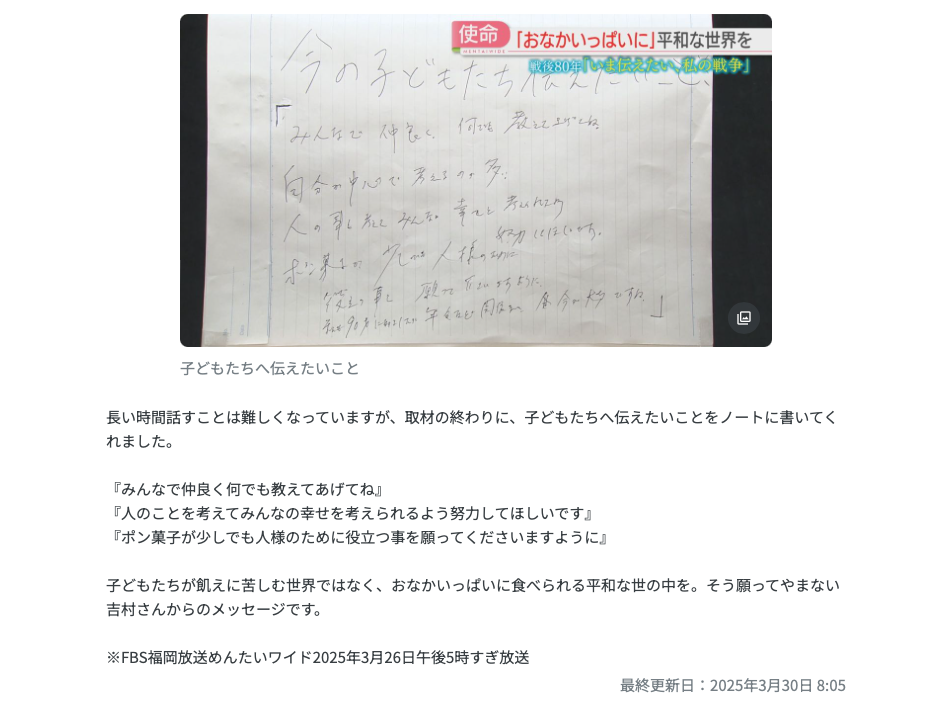 使命
「おなかいっぱいに」平和な世界を
MENTAIWIDE
戦後80年「いま伝えたい、私の戦争」
今の子どもたち伝えたいこと、
「みんなで仲良く、何でも教えて上げてね
自分が中心で考えるのが多い
人の事し考えて みんなの 幸せを 考えられる
努力してほしいです。
ポン菓子が 少しでも 人様のために
役立つ事を 願って 下さいますように。
子どもたちへ伝えたいこと
長い時間話すことは難しくなっていますが、取材の終わりに、子どもたちへ伝えたいことをノートに書いてく
れました。
『みんなで仲良く何でも教えてあげてね』
『人のことを考えてみんなの幸せを考えられるよう努力してほしいです』
『ポン菓子が少しでも人様のために役立つ事を願ってくださいますように』
子どもたちが飢えに苦しむ世界ではなく、おなかいっぱいに食べられる平和な世の中を。そう願ってやまない
吉村さんからのメッセージです。
※FBS福岡放送めんたいワイド2025年3月26日午後5時すぎ放送
最終更新日：2025年3月30日 8:05